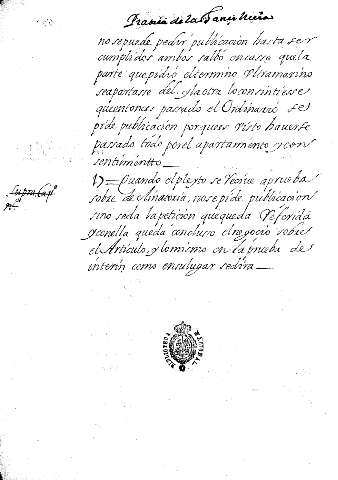 Practica de la
no sepuede pedir publicacion hasta ser
cumplidos ambos saluo encasso quela
parte quepidio eltermino Vltramarino
seapartasse del, y laotra lo consintiesse
queentonces passado el Ordinario se
pide publicacion porque es visto hauerse
passado todo porel apartamento, y con
sentimiento
Supra Cap.
V = Quando el pleyto se reciue aprueba
sobre de Atinatoria, nose pide publicacion
sino seda la peticion quequeda referida
y conella queda concluso el negocio sobre
el Articulo, y lo mismo en la prueba de
interin como ensulugar sedira
BIBLIOTECA NACIONAL